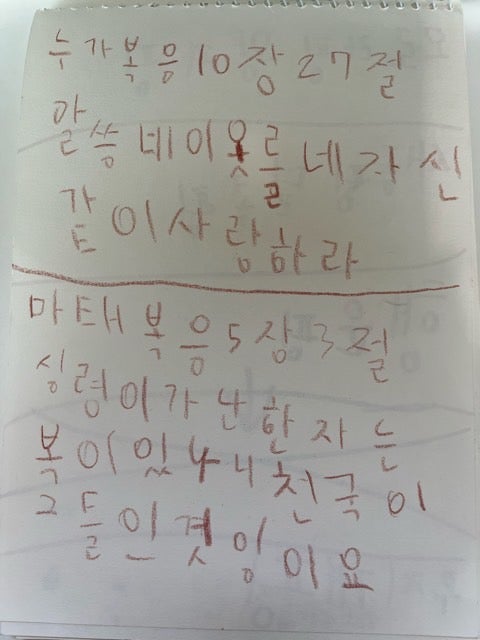 누가복음10장27절
말씀네이웃를네자신
같이사랑하라
마태복음5장3절
심령이가난한자는
복이있나니천국이
그들인것임이요